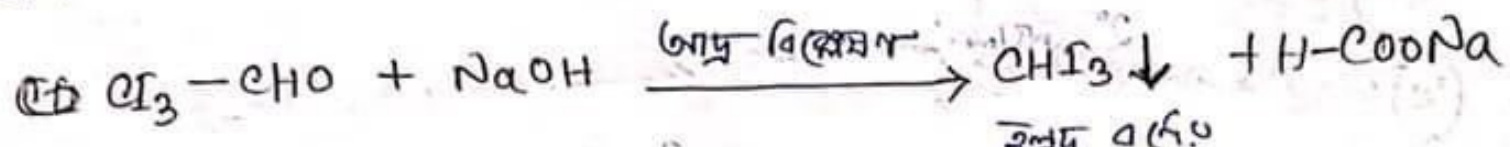 CI₃-CHO + NaOH আদ্র বিশ্লেষণ → CHI₃↓ + H-COONa
হলুদ বর্ণের